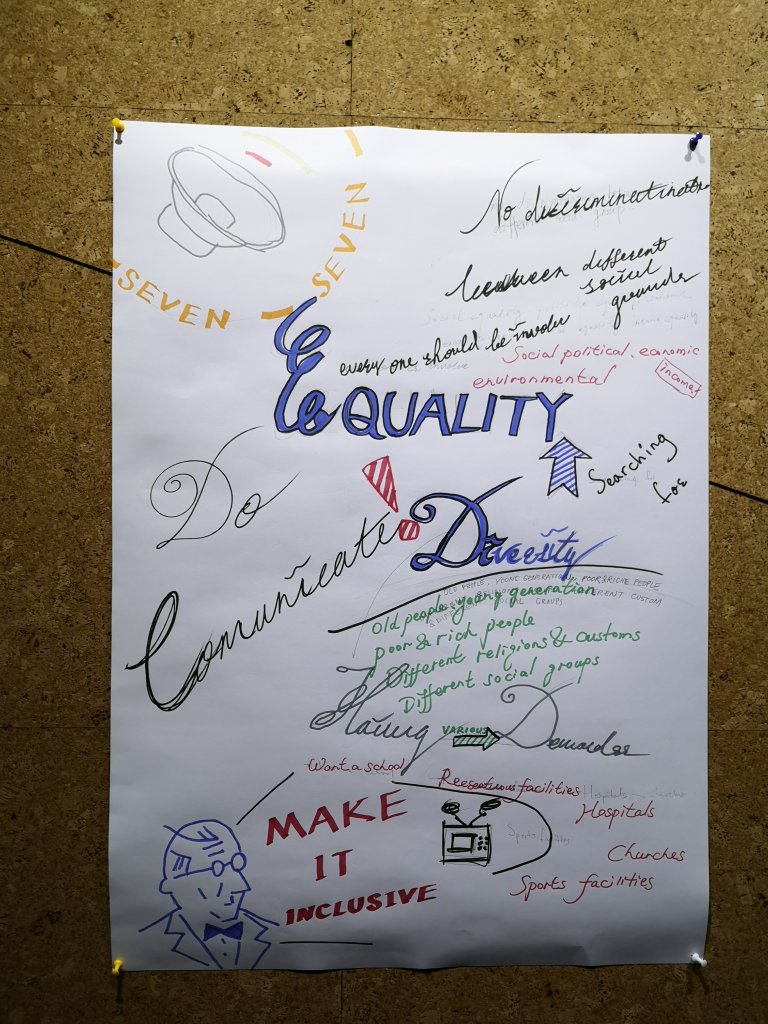 SEVEN
SEVEN
No
between different
social
grounds
every one should be
Social political, eanomic
incomes
environmental
EQUALITY
Searching
for
Do
Comunicate!
Diversity
OLD PEOPLE, YOUNG GENERATION, POOR & RICHE PEOPLE
DIFFERENT CUSTOM
SOCIAL GROUPS
Old people, young generation
poor & rich people
Different religions & customs
Different social groups
Having VARIOUS Demandes
Want a school
facilities
Hospitals
MAKE
IT
INCLUSIVE
Churches
Sports facilities